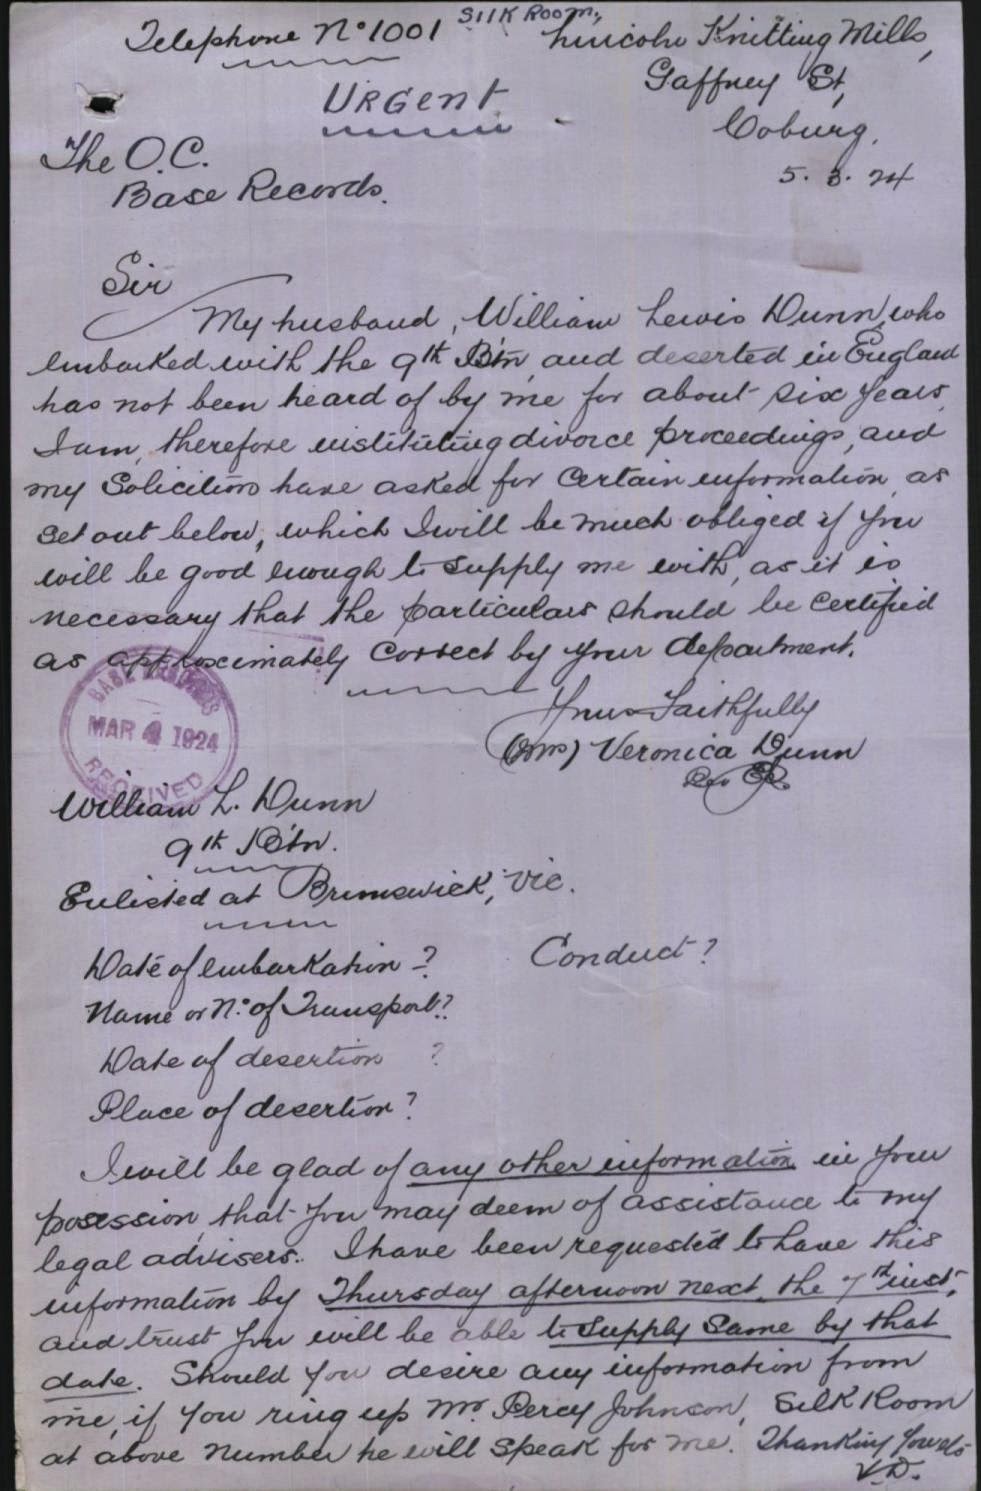 Silk Room,
Telephone No 1001
Lincoln Knitting Mills,
Gaffney St,
Coburg.
5. 3. 24
Urgent
The O.C.
Base Records.
Sir
My husband, William Lewis Dunn, who
embarked with the 9th Btn, and deserted in England
has not been heard of by me for about six years.
I am, therefore instituting divorce proceedings, and
my Solicitors have asked for certain information as
set out below, which I will be much obliged if you
will be good enough to supply me with, as it is
necessary that the particulars should be certified
as approximately correct by your department.
Yours Faithfully
(Mrs) Veronica Dunn
BASE RECORDS
MAR 4 1924
RECEIVED
William L. Dunn
9th Btn.
Enlisted at Brunswick, Vic.
Date of embarkation ?
Conduct ?
Name or No. of Transport ?
Date of desertion ?
Place of desertion ?
I will be glad of any other information in your
posession, that you may deem of assistance to my
legal advisers. I have been requested to have this
information by Thursday afternoon next, the 7th inst,
and trust you will be able to supply same by that
date. Should you desire any information from
me, if you ring up Mr. Percy Johnson, Silk Room
at above number he will speak for me. Thanking you
V.D.